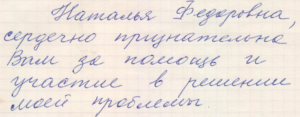 Наталья Федоровна,
сердечно признательна
Вам за помощь и
участие в решении
моей проблемы.